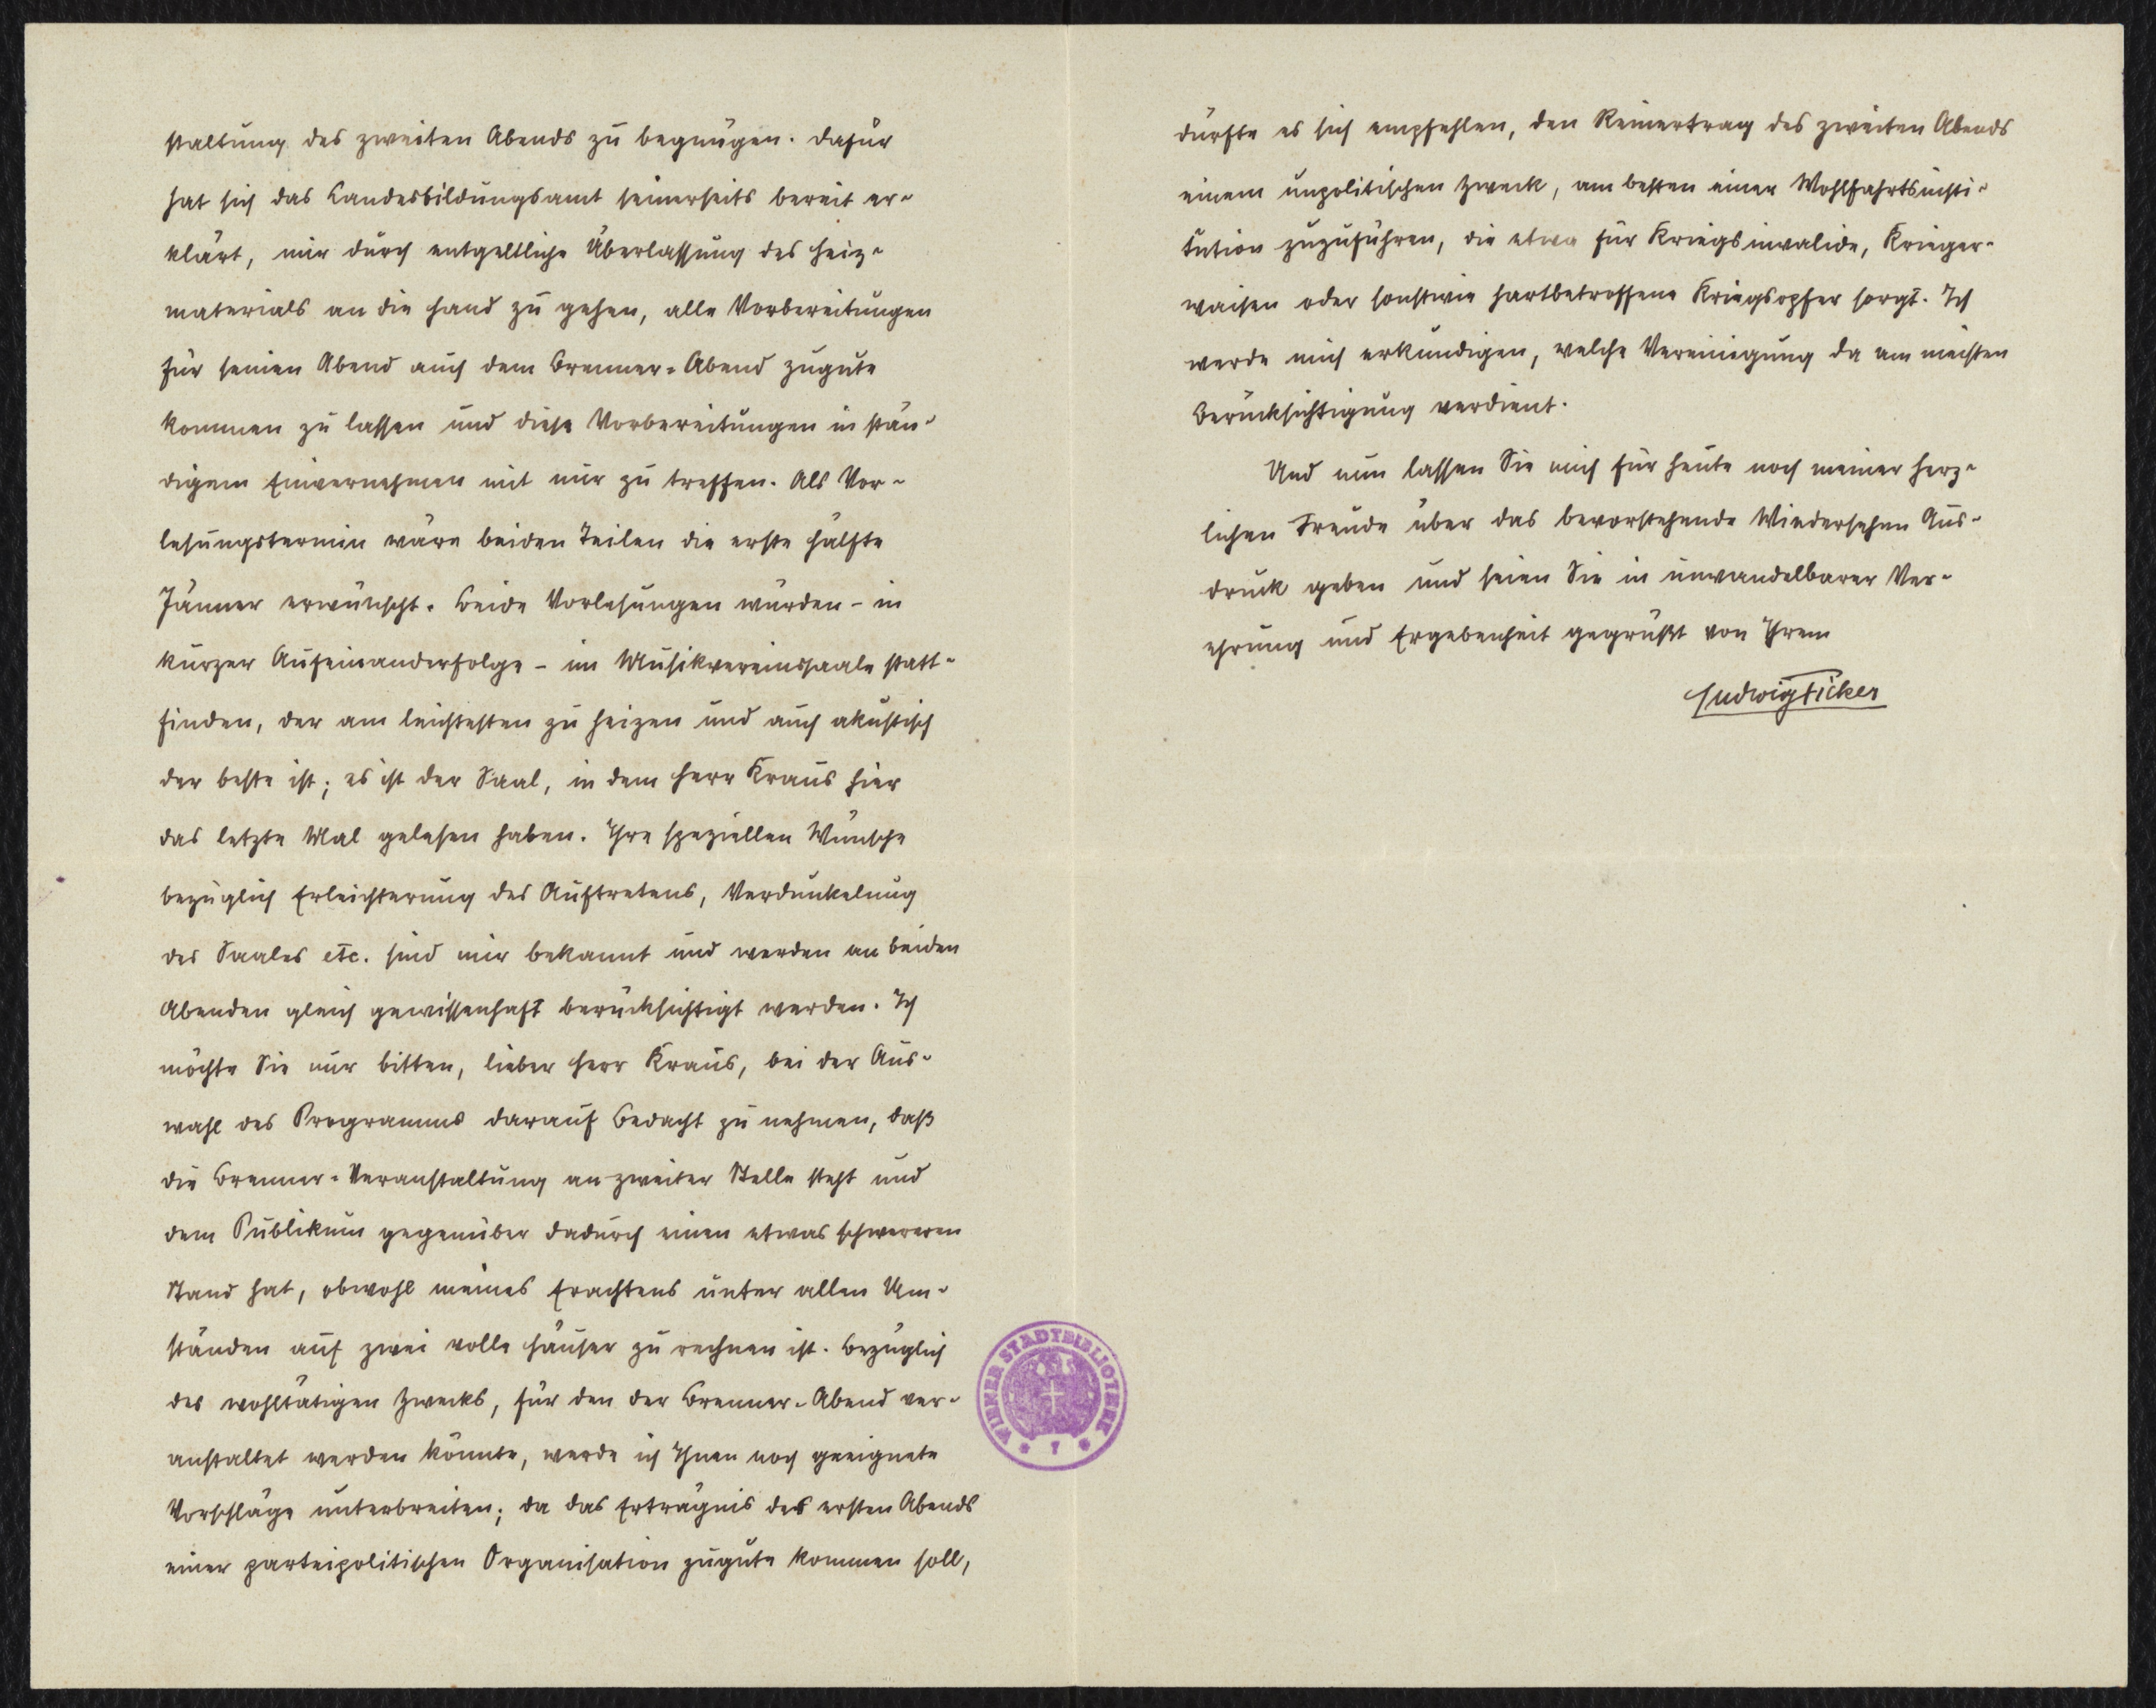 staltung des zweiten Abends zu begnügen. Dafür
hat sich das Landesbildungsamt seinerseits bereit er-
klärt, mir durch entgeltliche Überlassung des Heiz-
materials an die Hand zu gehen, alle Vorbereitungen
für seinen Abend auch dem Brenner-Abend zugute
kommen zu lassen und diese Vorbereitungen in stän-
digem Einvernehmen mit mir zu treffen. Als Vor-
lesungstermin wäre beiden Teilen die erste Hälfte
Jänner erwünscht. Beide Vorlesungen würden – in
kurzer Aufeinanderfolge – im Musikvereinssaale statt-
finden, der am leichtesten zu heizen und auch akustisch
der beste ist; es ist der Saal, in dem Herr Kraus hier
das letzte Mal gelesen haben. Ihre speziellen Wünsche
bezüglich Erleichterung des Auftretens, Verdunkelung
des Saales etc. sind mir bekannt und werden an beiden
Abenden gleich gewissenhaft berücksichtigt werden. Ich
möchte Sie nur bitten, lieber Herr Kraus, bei der Aus-
wahl des Programms darauf Bedacht zu nehmen, daß
die Brenner-Veranstaltung an zweiter Stelle steht und
dem Publikum gegenüber dadurch einen etwas schwereren
Stand hat, obwohl meines Erachtens unter allen Um-
ständen auf zwei volle Häuser zu rechnen ist. Bezüglich
des wohltätigen Zwecks, für den der Brenner-Abend ver-
anstaltet werden könnte, werde ich Ihnen noch geeignete
Vorschläge unterbreiten; da das Erträgnis des ersten Abends
einer parteipolitischen Organisation zugute kommen soll,
WIENER STADTBIBLIOTHEK
dürfte es sich empfehlen, den Reinertrag des zweiten Abends
einem unpolitischen Zweck, am besten einer Wohlfahrtsinsti-
tution zuzuführen, die etwa für Kriegsinvalide, Krieger-
waisen oder sonstwie hartbetroffene Kriegsopfer sorgt. Ich
werde mich erkundigen, welche Vereinigung da am meisten
Berücksichtigung verdient.
Und nun lassen Sie mich für heute noch meiner herz-
lichen Freude über das bevorstehende Wiedersehen Aus-
druck geben und seien Sie in unwandelbarer Ver-
ehrung und Ergebenheit gegrüßt von Ihrem
Ludwig Ficker